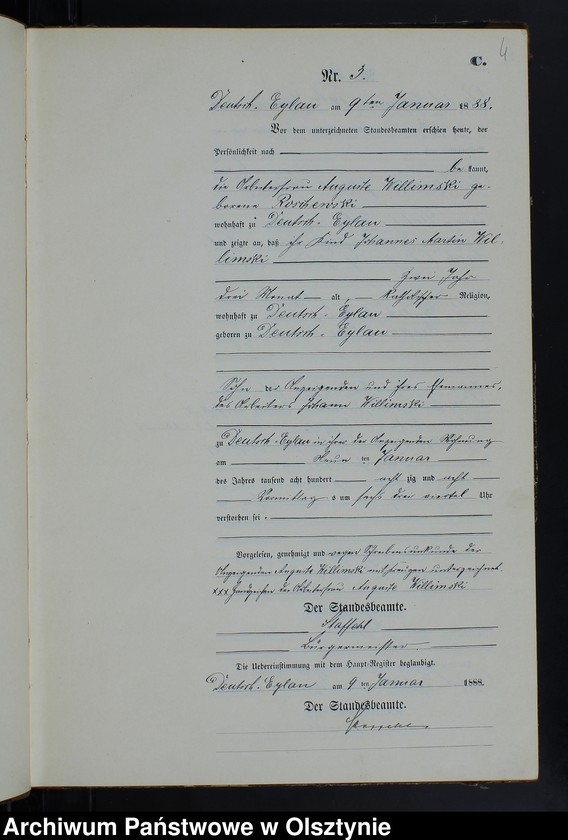 4
C.
Nr. 3.
Deutsch-Eylau am 9ten Januar 1888.
Vor dem unterzeichneten Standesbeamten erschien heute, der
Persönlichkeit nach
be kannt,
die Arbeiterfrau Auguste Willimski ge-
borene Roschewski
wohnhaft zu Deutsch-Eylau
und zeigte an, daß ihr Kind Johannes Martin Wil-
limski
zwei Jahr
drei Monat alt, Katholischer Religion,
wohnhaft zu Deutsch-Eylau
geboren zu Deutsch-Eylau
Sohn der Anzeigenden und ihres Ehemannes,
des Arbeiters Johann Willimski
zu Deutsch-Eylau in ihrer der Anzeigenden Wohnung
am Neun ten Januar
des Jahres tausend acht hundert acht zig und acht
Vormittags um sechs drei viertel Uhr
verstorben sei.
Vorgelesen, genehmigt und wegen Schreibensunkunde der
Anzeigenden Auguste Willimski mit Kreuzen unterzeichnet
xxx Handzeichen der Arbeiterfrau Auguste Willimski
Der Standesbeamte.
Staffehl
Bürgermeister
Die Uebereinstimmung mit dem Haupt-Register beglaubigt.
Deutsch-Eylau am 9 ten Januar 1888.
Der Standesbeamte.
Staffehl
Archiwum Państwowe w Olsztynie